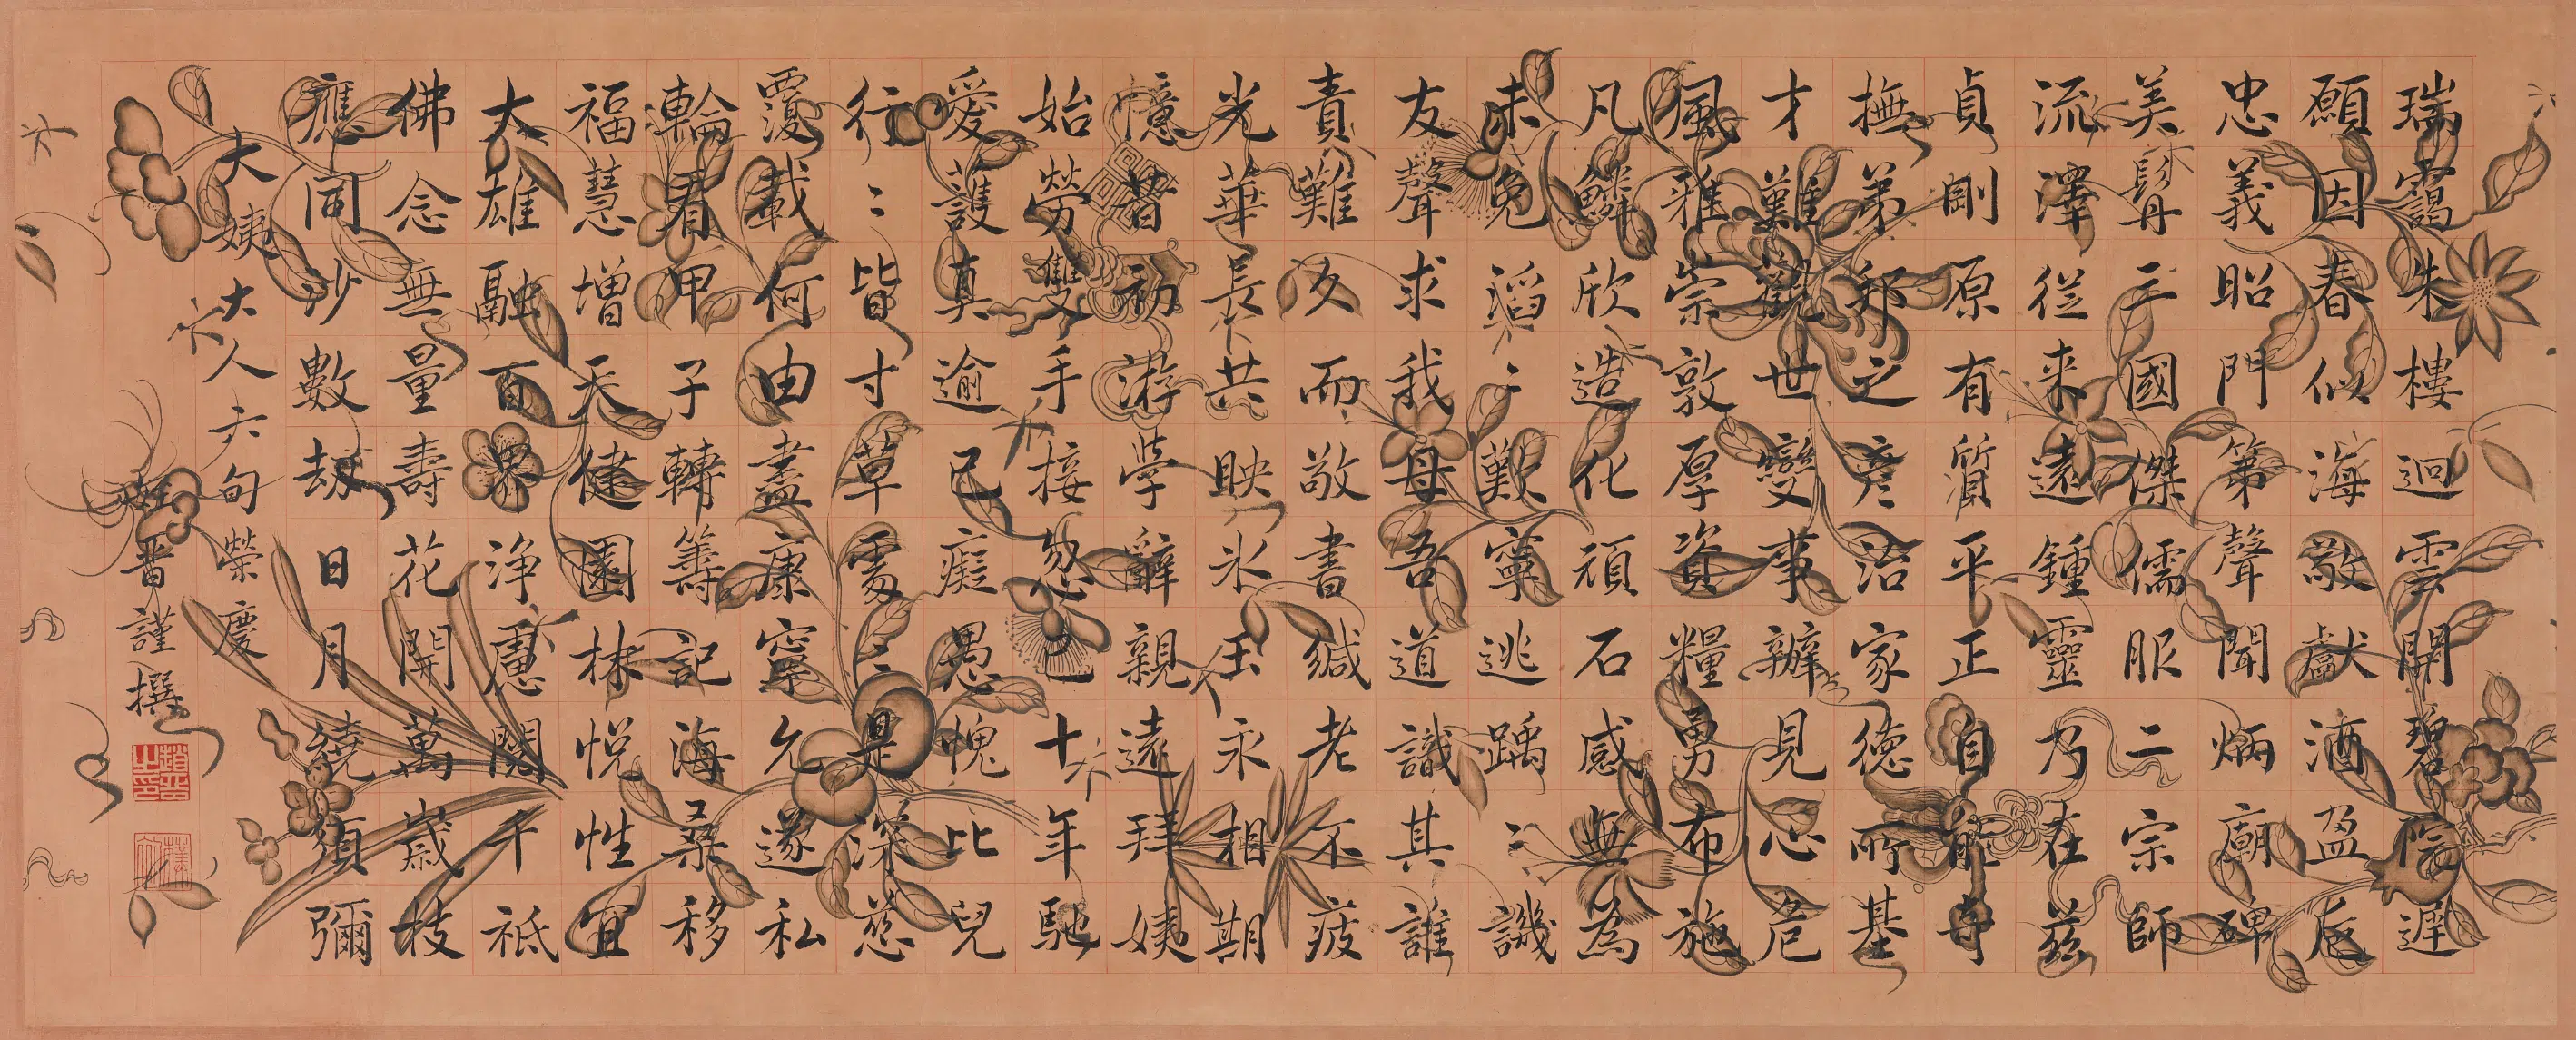 瑞靄朱樓迥雲開碧院遲
願因春似海敬獻酒盈卮
忠義昭門第聲聞炳廟碑
美髯三國傑儒服二宗師
流澤從来遠鍾靈乃在茲
貞剛原有質平正自能奇
撫弟邦之彥治家德所基
才難觀世變事辦見心危
風雅崇敦厚資糧勇布施
凡鱗欣造化頑石感無為
未免滔〻歎寧逃踽〻譏
友聲求我母吾道識其誰
責難久而敬書緘老不疲
光華長共映氷玉永相期
憶昔初游學辭親遠拜姨
始勞雙手接忽已十年馳
愛護真逾已癡愚愧比兒
行〻皆寸草處〻是深慈
覆載何由盡康寧允遂私
輪看甲子轉籌記海桑移
福慧增天健園林悅性宜
大雄融百界淨慮閱千祇
佛念無量壽花開萬歲枝
應同沙數劫日月繞須彌
大姨大人六旬榮慶
姪晋謹撰
趙晋之印